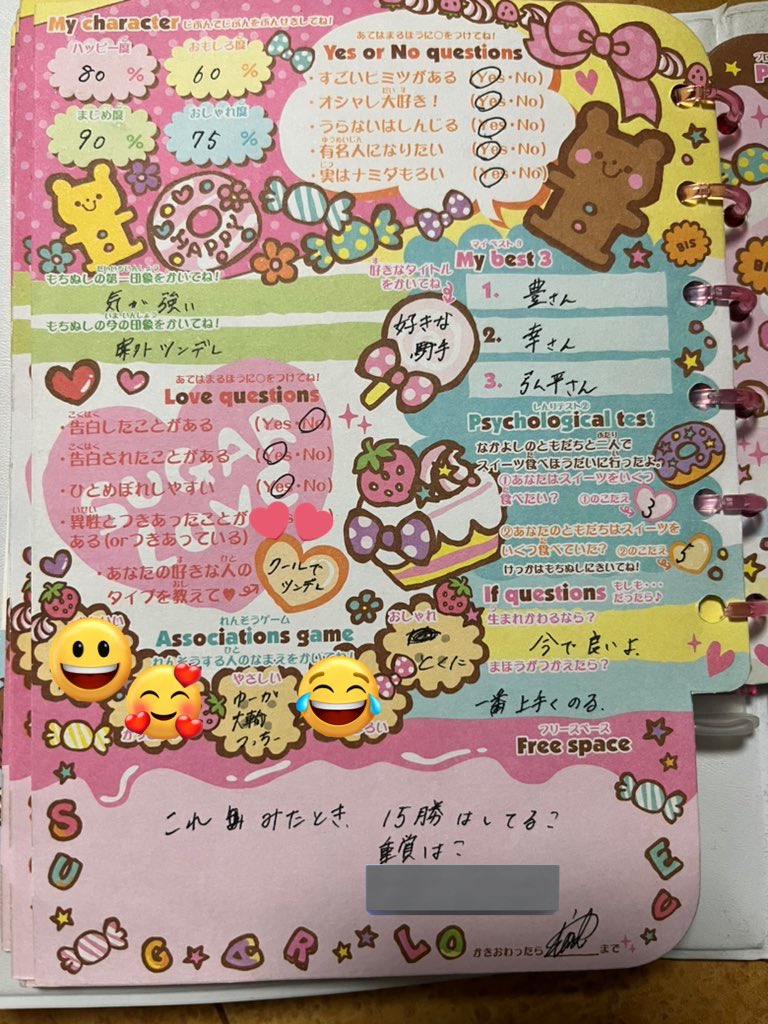 My character じぶんでじぶんをぶんせきしてね!
ハッピー度
80 %
おもしろ度
60 %
まじめ度
90 %
おしゃれ度
75 %
HAPPY
あてはまるほうに○をつけてね!
Yes or No questions
・すごいヒミツがある (Yes・No)
・オシャレ大好き! (Yes・No)
・うらないはしんじる (Yes・No)
・有名人になりたい (Yes・No)
・実はナミダもろい (Yes・No)
もちぬしの第一印象をかいてね!
気が強い
もちぬしの今の印象をかいてね!
案外ツンデレ
好きなタイトルをかいてね!
好きな
騎手
マイベスト③
My best 3
1. 豊さん
2. 幸さん
3. 弘平さん
BIS
BIS
あてはまるほうに○をつけてね!
Love questions
・告白したことがある (Yes・No)
・告白されたことがある (Yes・No)
・ひとめぼれしやすい (Yes・No)
・異性とつきあったことが
ある(orつきあっている)
・あなたの好きな人の
タイプを教えて♥
クールで
ツンデレ
しんりテスト②
Psychological test
なかよしのともだちと二人で
スイーツ食べほうだいに行ったよ。
①あなたはスイーツをいくつ
食べたい? ①のこたえ 3
②あなたのともだちはスイーツを
いくつ食べていた? ②のこたえ 5
けっかはもちぬしにきいてね!
If questions もしも・・・だったら♪
生まれかわるなら?
今で良いよ.
まほうがつかえたら?
一番上手くのる.
れんそうゲーム
Associations game
れんそうする人のなまえをかいてね!
おしゃれ
とくに
やさしい
ゆーが
大輔
つっちー
フリースペース
Free space
これ みたとき、15勝はしてる?
重賞は?
SUGAR LOVE
かきおわったら まで